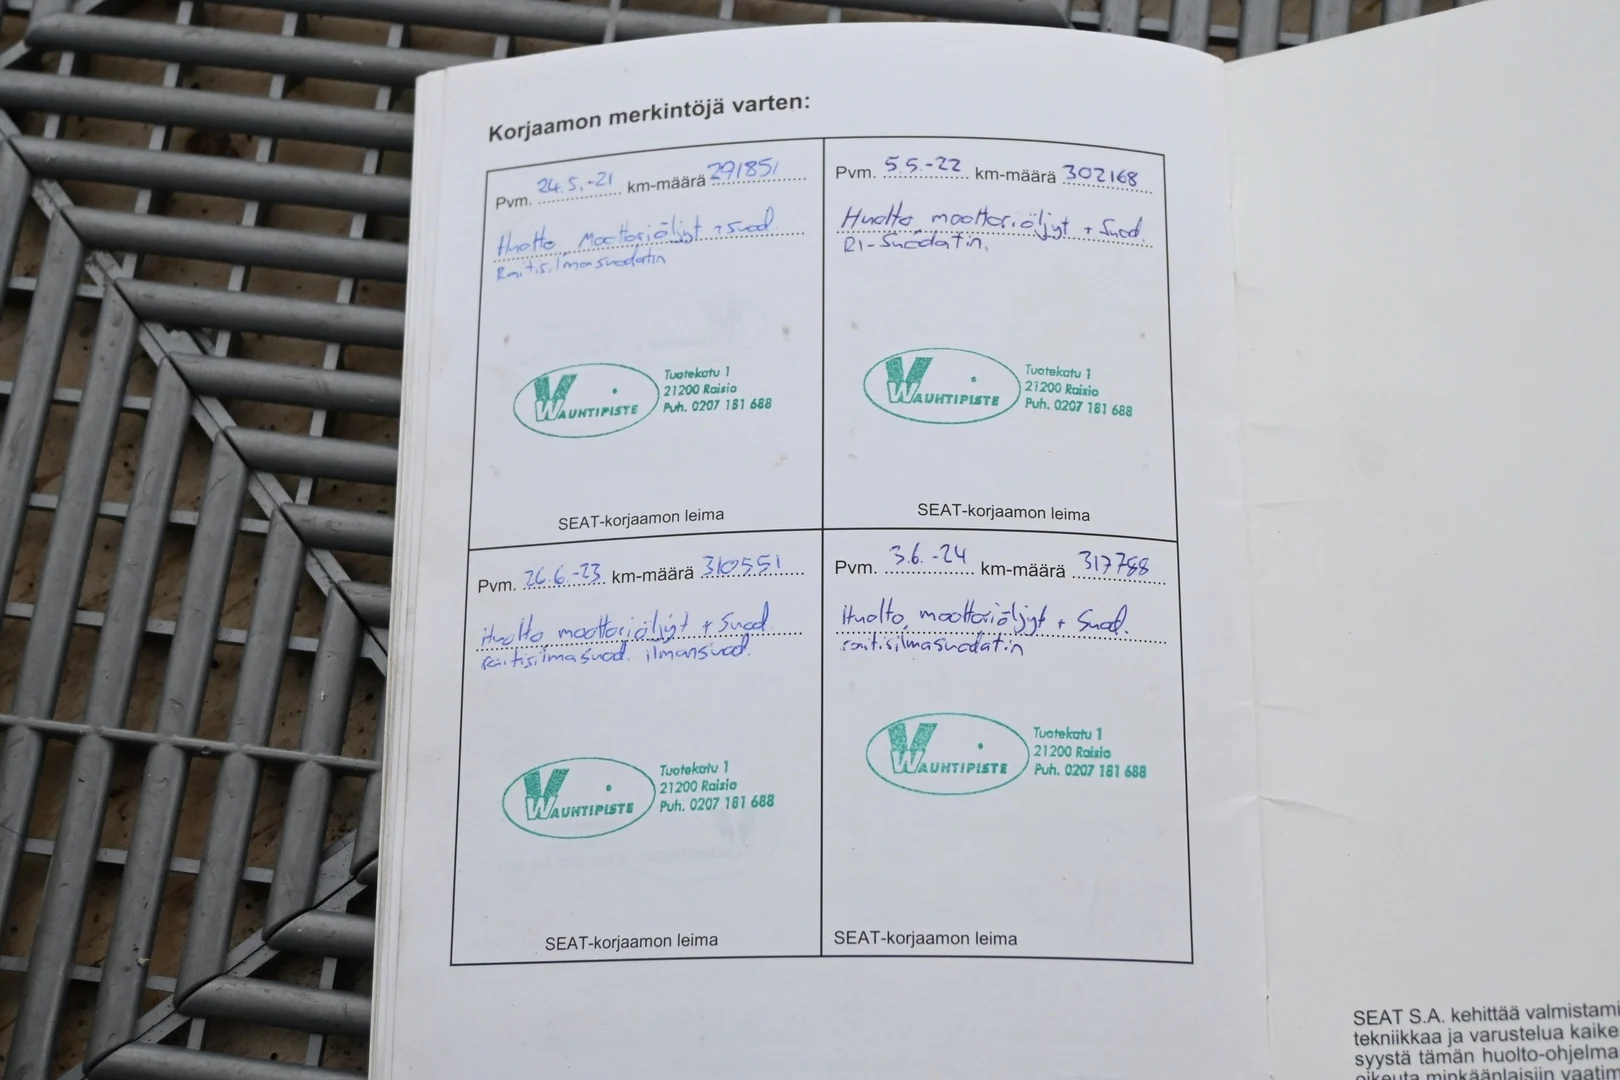 Korjaamon merkintöjä varten:
Pvm. 24.5.-21 km-määrä 291851
Huolto, Moottoriöljyt + suod.
Raitisilmasuodatin
Wauhtipiste
Tuotekatu 1
21200 Raisio
Puh. 0207 181 688
SEAT-korjaamon leima
Pvm. 5.5.-22 km-määrä 302168
Huolto, moottoriöljyt + Suod.
RI-Suodatin,
Wauhtipiste
Tuotekatu 1
21200 Raisio
Puh. 0207 181 688
SEAT-korjaamon leima
Pvm. 26.6.-23 km-määrä 310551
Huolto, moottoriöljyt + Suod.
raitisilmasuod. ilmansuod.
Wauhtipiste
Tuotekatu 1
21200 Raisio
Puh. 0207 181 688
SEAT-korjaamon leima
Pvm. 3.6.-24 km-määrä 317788
Huolto, moottoriöljyt + Suod.
raitisilmasuodatin
Wauhtipiste
Tuotekatu 1
21200 Raisio
Puh. 0207 181 688
SEAT-korjaamon leima
SEAT S.A. kehittää valmistami
tekniikkaa ja varustelua kaike
syystä tämän huolto-ohjelma
oikeuta minkäänlaisiin vaatim